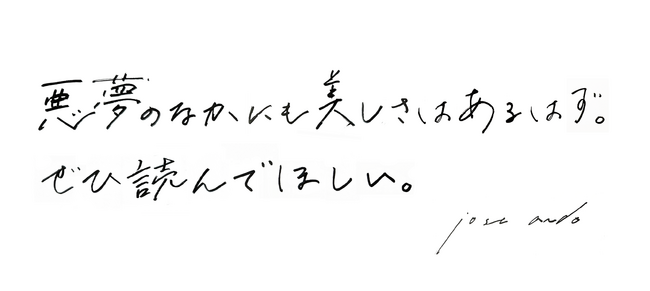 悪夢のなかにも美しさはあるはず。
ぜひ読んでほしい。
jose ando